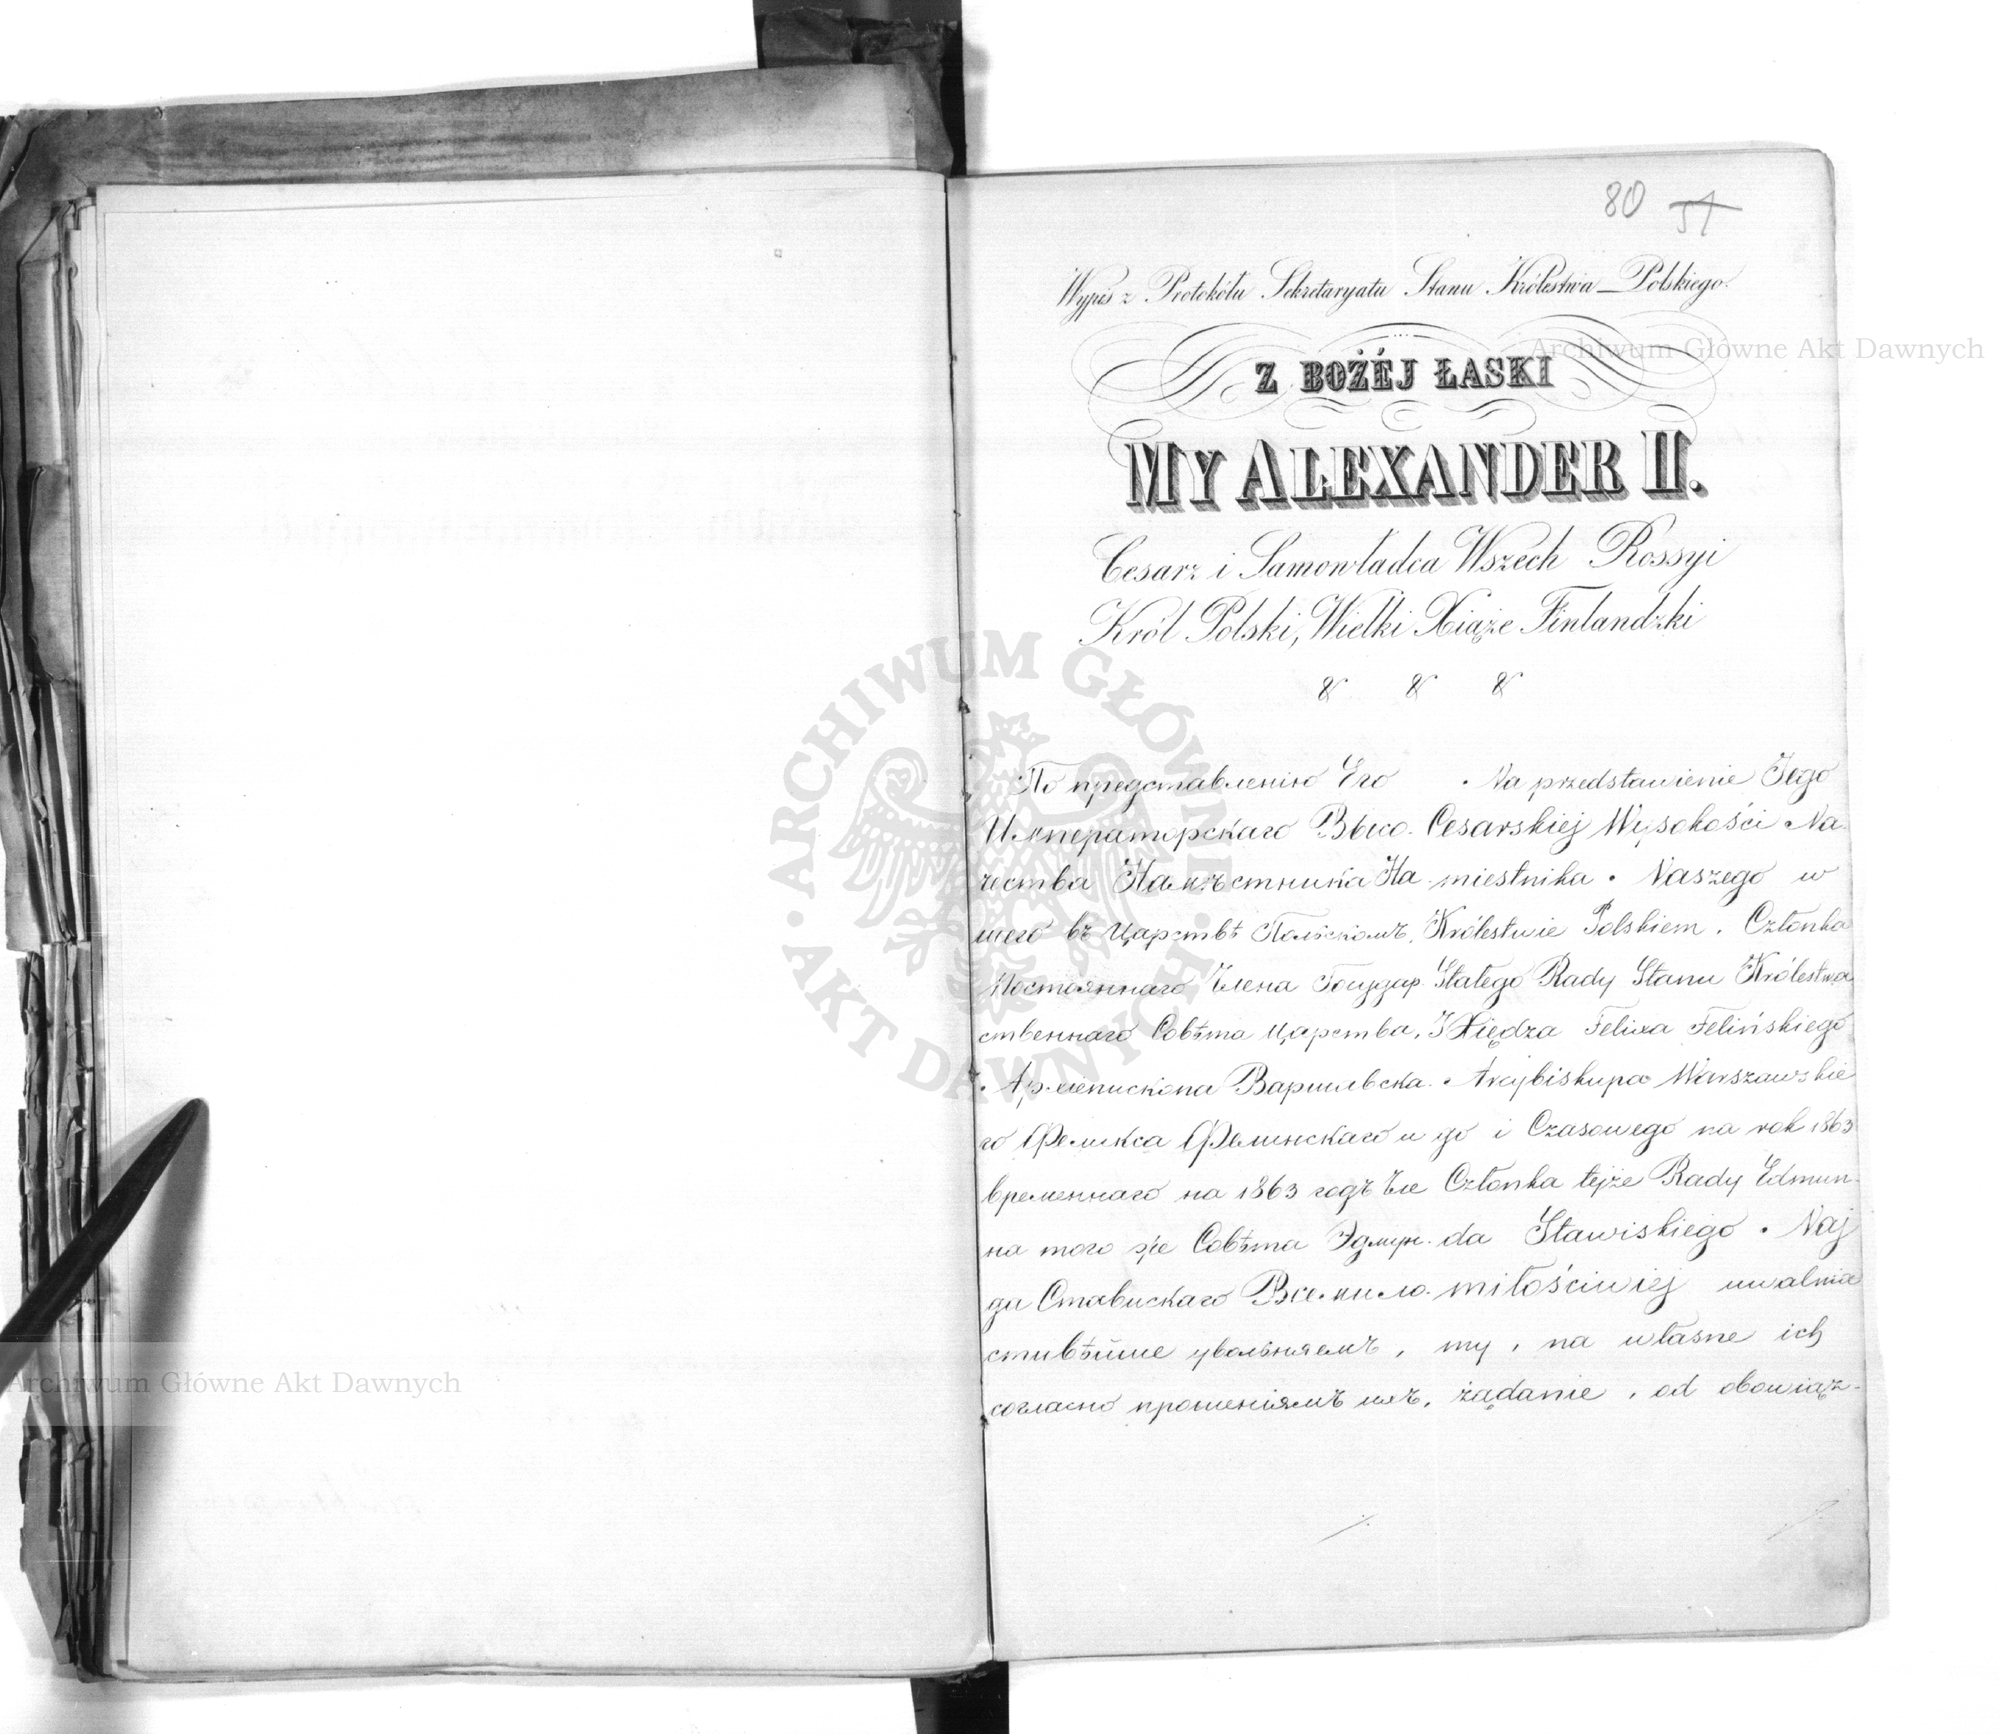 80 51
Wypis z Protokółu Sekretaryatu Stanu Królestwa Polskiego.
Z BOŻÉJ ŁASKI
MY ALEXANDER II.
Cesarz i Samowładca Wszech Rossyi
Król Polski, Wielki Xiąże Finlandzki
& & &
По представленію Его
Императорскаго Высо-
чества Намѣстника На-
шего въ Царствѣ Польскомъ,
Постояннаго Члена Государ-
ственнаго Совѣта Царства,
Архіепископа Варшавска-
го Феликса Фелинскаго и
временнаго на 1863 годъ Чле-
на того же Совѣта Эдмун-
да Ставискаго Всемило-
стивѣйше увольняемъ,
согласно прошеніямъ ихъ,
Na przedstawienie Jego
Cesarskiej Wysokości Na-
miestnika Naszego w
Królestwie Polskiem, Członka
Stałego Rady Stanu Królestwa
Xiędza Felixa Felińskiego
Arcybiskupa Warszawskie
go i Czasowego na rok 1863
Członka tejże Rady Edmun-
da Stawiskiego Naj
miłościwiej uwalnia
my, na własne ich
żądanie, od obowiąz-
ARCHIWUM GŁÓWNE AKT DAWNYCH
Archiwum Główne Akt Dawnych
Archiwum Główne Akt Dawnych